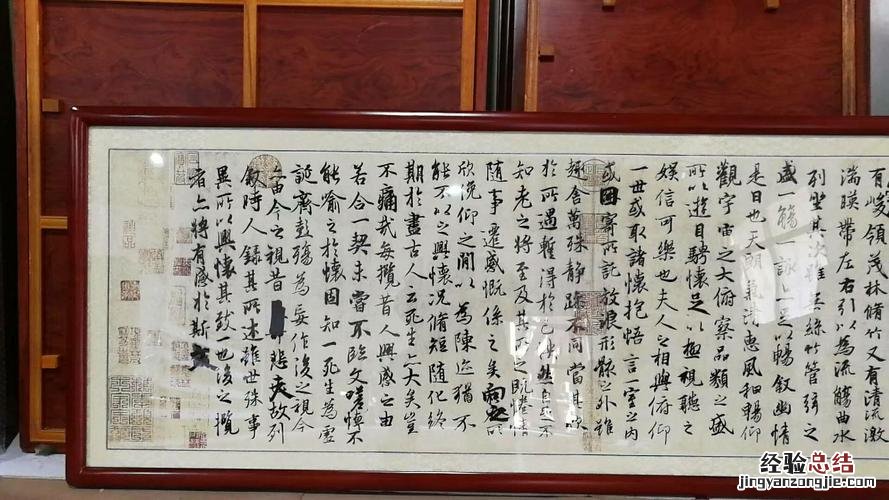 有峻領茂林脩竹又有清流激
湍暎帶左右引以為流觴曲水
列坐其次雖無絲竹管弦之
盛一觴一詠亦足以暢敘幽情
是日也天朗氣清惠風和暢仰
觀宇宙之大俯察品類之盛
所以遊目騁懷足以極視聽之
娛信可樂也夫人之相與俯仰
一世或取諸懷抱悟言一室之內
或因寄所託放浪形骸之外雖
趣舍萬殊靜躁不同當其欣
於所遇暫得於己快然自足不
知老之將至及其所之既惓情
隨事遷感慨係之矣向之所
欣俛仰之間以為陳迹猶不
能不以之興懷況脩短隨化終
期於盡古人云死生亦大矣豈
不痛哉每攬昔人興感之由
若合一契未嘗不臨文嗟悼不
能喻之於懷固知一死生為虛
誕齊彭殤為妄作後之視今
亦由今之視昔悲夫故列
敘時人錄其所述雖世殊事
異所以興懷其致一也後之攬
者亦將有感於斯文
经验总结
jingyanzongjie.com